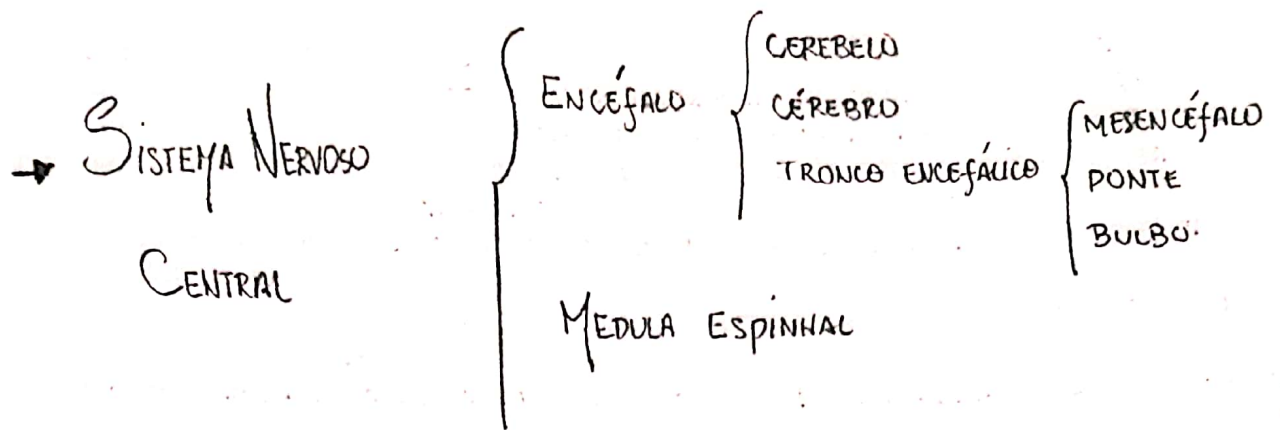 SISTEMA NERVOSO
CENTRAL
ENCÉFALO
CEREBELO
CÉREBRO
TRONCO ENCEFÁLICO
MESENCÉFALO
PONTE
BULBO.
MEDULA ESPINHAL